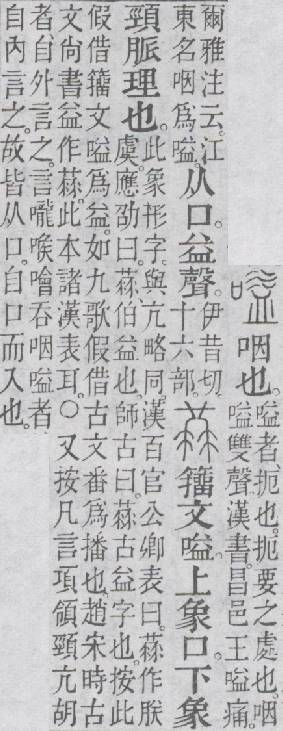 嗌咽也。嗌者。扼也。扼要之處也。咽
嗌雙聲。漢書。昌邑王嗌痛。
爾雅注云。江
東名咽爲嗌。
从口。益聲。伊昔切。
十六部。
𦯔籒文嗌。上象口。下象
頸脈理也。此象形字。與亢略同。漢百官公卿表曰。𦯔作朕
虞。應劭曰。𦯔伯益也。師古曰。𦯔古益字也。按此
假借籒文嗌爲益。如九歌假借古文番爲播也。趙宋時古
文尚書益作𦯔。此本諸漢表耳。○又按凡言項領頸亢胡
者。自外言之。言嚨喉噲吞咽嗌者
自內言之。故皆从口。自口而入也。